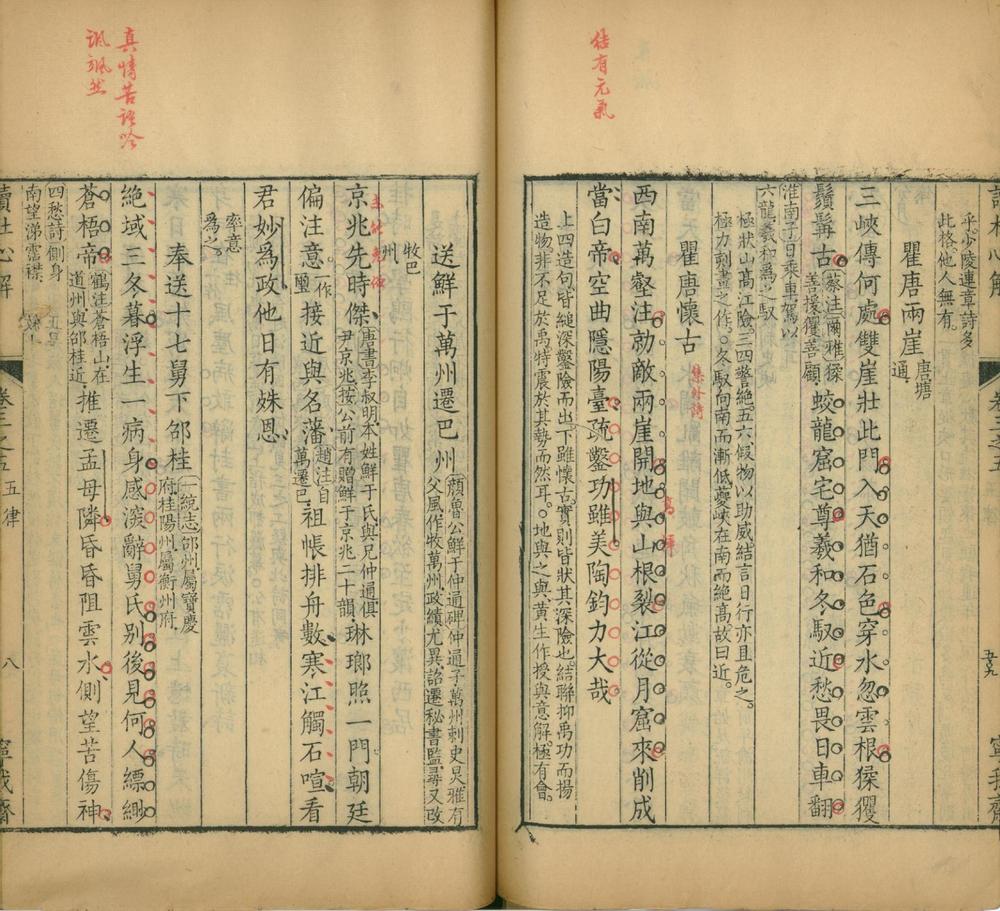 乎少陵連章詩多
此格他人無有
瞿唐兩崖 唐塘通
三峽傳何處雙崖壯此門入天猶石色穿水忽雲根猱玃
鬚髯古 蔡注爾雅猱善援玃善顧 蛟龍窟宅尊羲和冬馭近愁畏日車翻
淮南子日乘車駕以六龍羲和為之馭
極狀山高江險三四警絕五六假物以助威結言日行亦且危之
極力刻畫之作。冬馭向南而漸低夔峽在南而絕高故曰近。
瞿唐懷古 集外詩
西南萬壑注勍敵兩崖開地與山根裂江從月窟來削成
當白帝空曲隱陽臺疏鑿功雖美陶鈞力大哉
上四造句皆縋深鑿險而出下雖懷古實則皆狀其深險也結聯抑禹功而揚
造物非不足於禹特震於其勢而然耳。地與之與黃生作授與意解極有會。
五十九
寧我齋
送鮮于萬州遷巴州 顏魯公鮮于仲通碑仲通子萬州刺史炅雅有父風作牧萬州政績尤異詔遷秘書監尋又改
牧巴州
京兆先時傑 唐書李叔明本姓鮮于氏與兄仲通俱尹京兆按公前有贈鮮于京兆二十韻 琳瑯照一門朝廷
偏注意 一作璽 接近與名藩 趙注自萬遷巴 祖帳排舟數寒江觸石喧看
君妙爲政他日有姝恩
率意為之。
奉送十七舅下邵桂 一統志邵州屬寶慶府桂陽州屬衡州府
絕域三冬暮浮生一病身感深辭舅氏別後見何人縹緲
蒼梧帝 鶴注蒼梧山在道州與邵桂近 推遷孟母隣昏昏阻雲水側望苦傷神
四愁詩側身南望涕霑襟
讀杜心解
卷三之五
五律
八
寧我齋
真情苦語吟
諷颯然